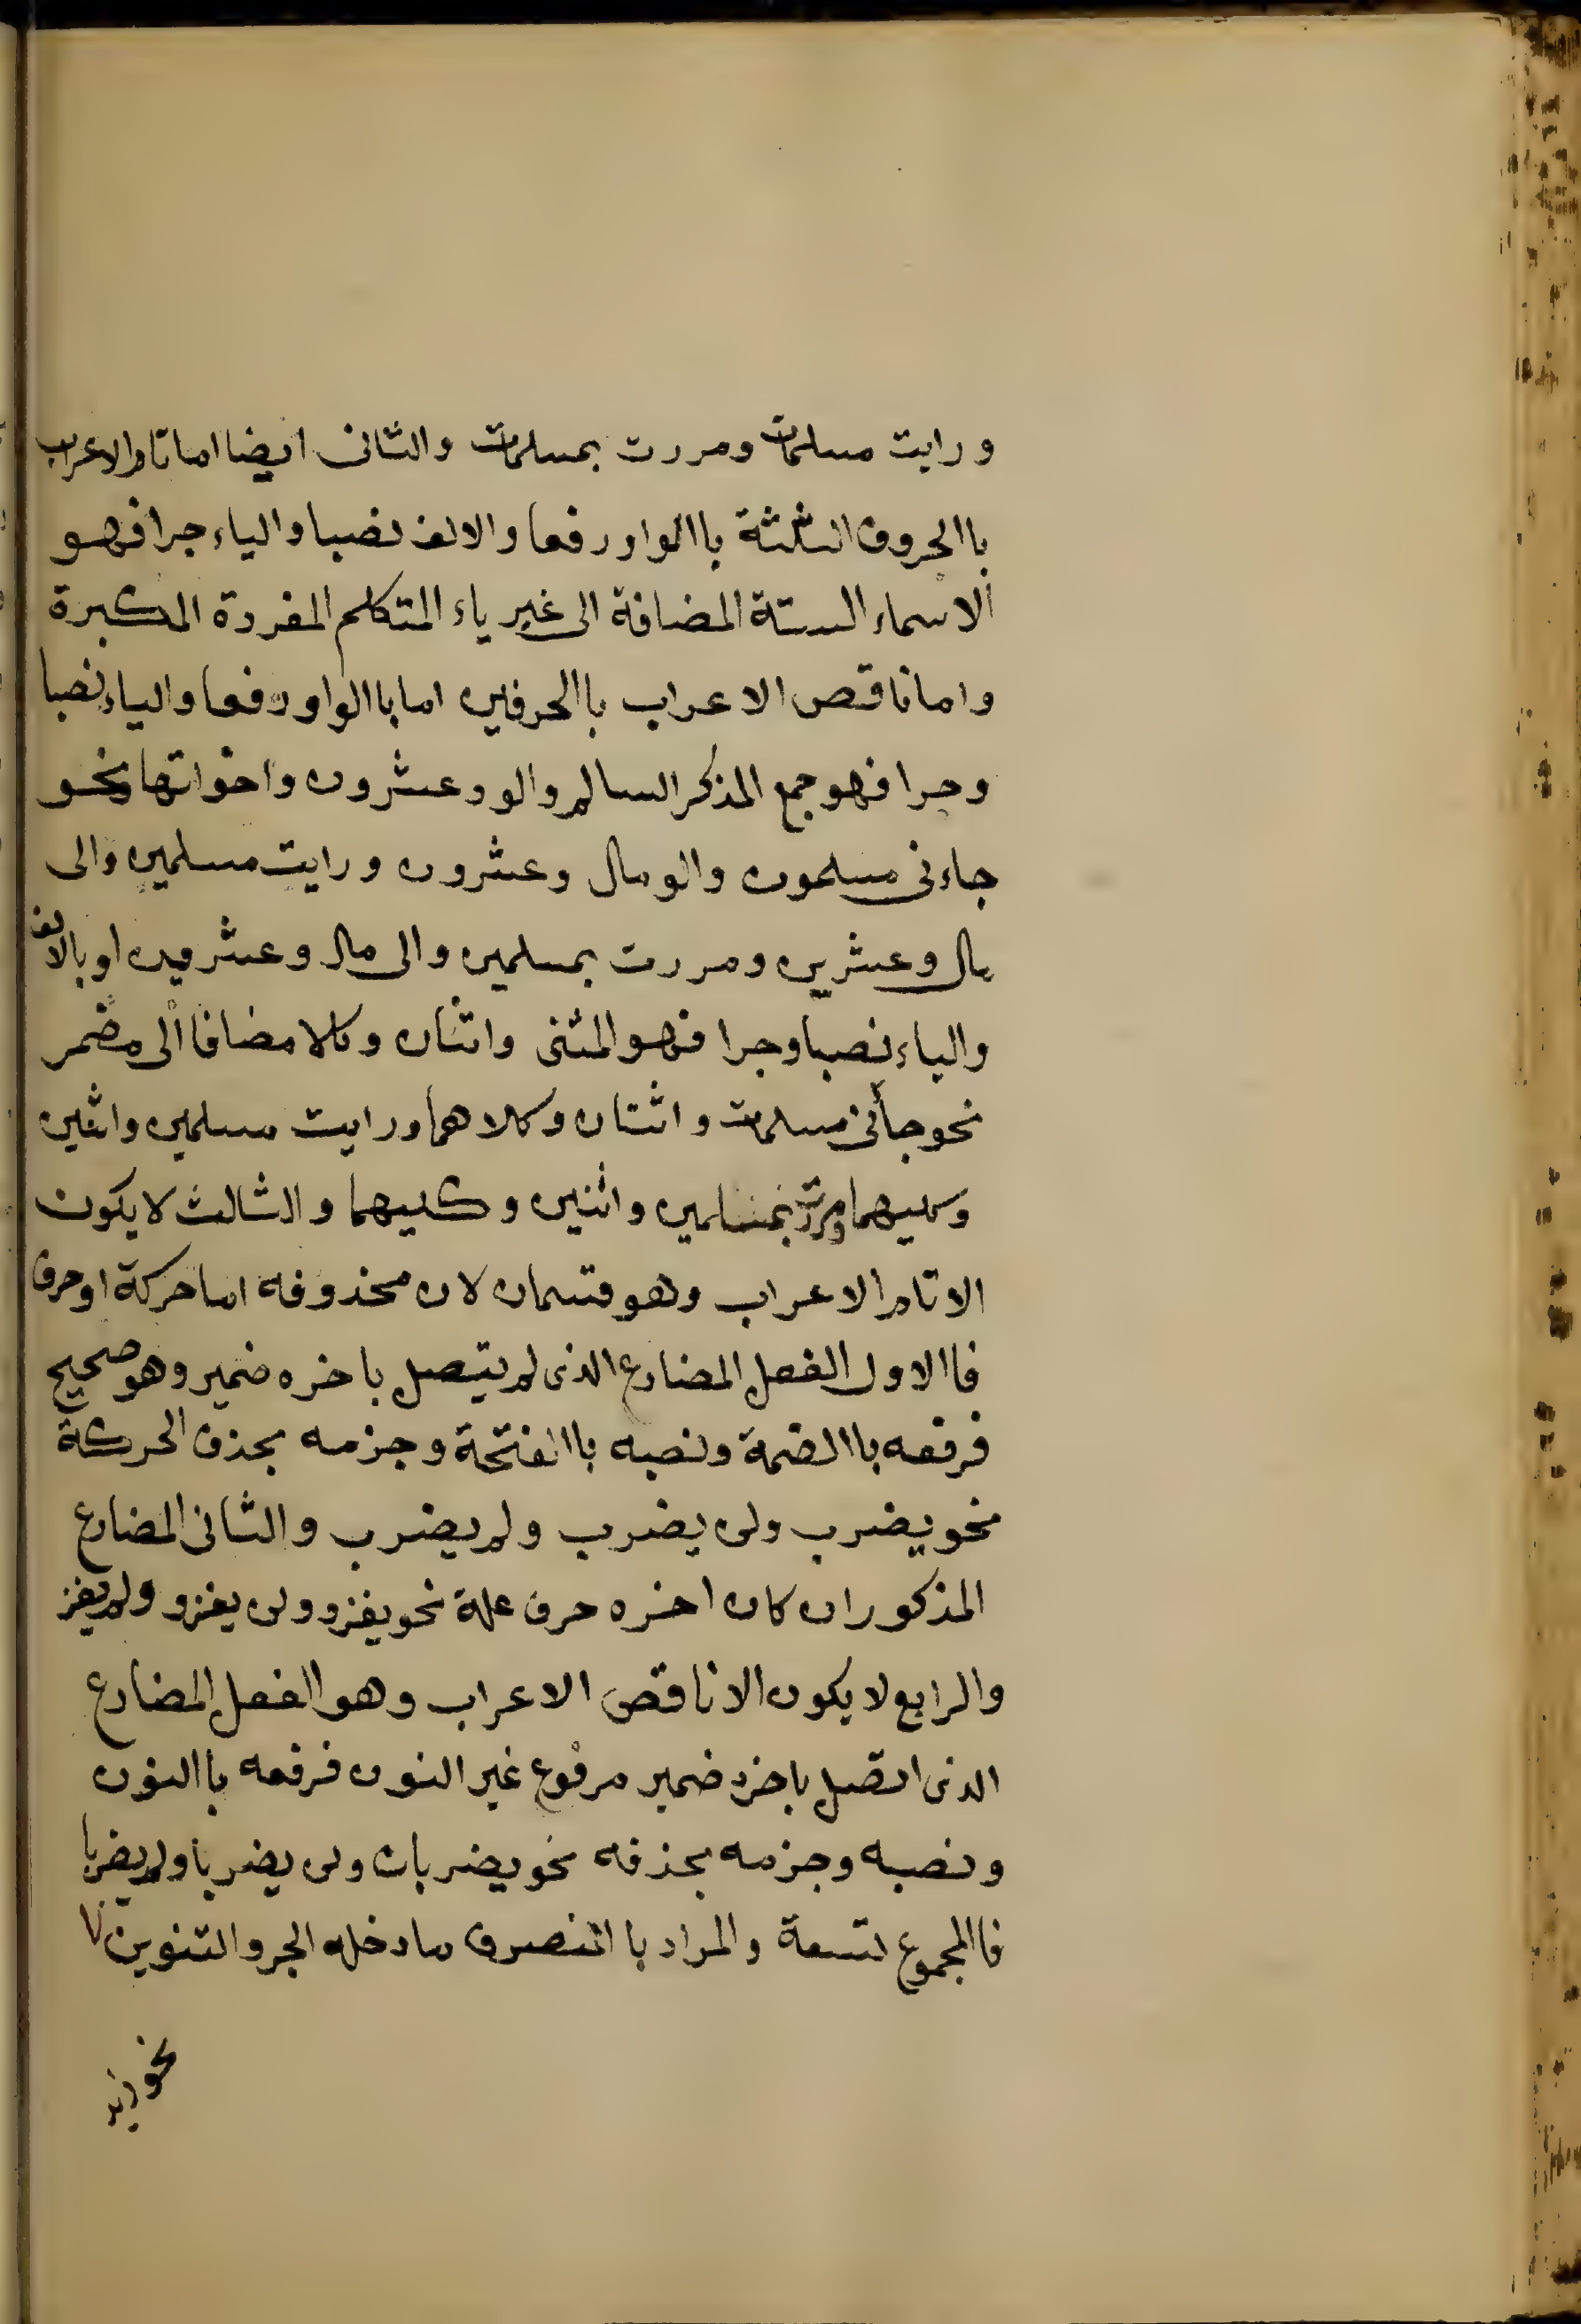 ورايت مسلمات ومررت بمسلمات والثانى ايضا اما تام الاعراب
باالحروف الثلثة باالواو رفعا والالف نصبا والياء جرا فهو
الاسماء الستة المضافة الى غير ياء المتكلم المفردة المكبرة
واما ناقص الاعراب باالحرفين اما باالواو رفعا والياء نصبا
وجرا فهو جمع المذكر السالم والو وعشرون واخواتها نحو
جاءنى مسلمون والو مال وعشرون ورايت مسلمين والى
مال وعشرين ومررت بمسلمين والى مال وعشرين او بالالف
والياء نصبا وجرا فهو المثنى واثنان وكلا مضافا الى مضمر
نحو جأنى مسلمان واثنان وكلاهما ورايت مسلمين واثنين
وكليهما ومررت بمسلمين واثنين وكليهما والثالث لا يكون
الا تام الاعراب وهو قسمان لان محذوفه اما حركة او حرف
فاالاول الفعل المضارع الذى لم يتصل باخره ضمير وهو صحيح
فرفعه باالضمة ونصبه باالفتحة وجزمه بحذف الحركة
نحو يضرب ولن يضرب ولم يضرب والثانى المضارع
المذكور ان كان اخره حرف علة نحو يغزو ولن يغزو ولم يغز
والرابع لا يكون الا ناقص الاعراب وهو الفعل المضارع
الذى اتصل باخره ضمير مرفوع غير النون فرفعه باالنون
ونصبه وجزمه بحذفه نحو يضربان ولن يضربا ولم يضربا
فاالمجموع تسعة والمراد باالمنصرف ما دخله الجر والتنوين
نحو زيد